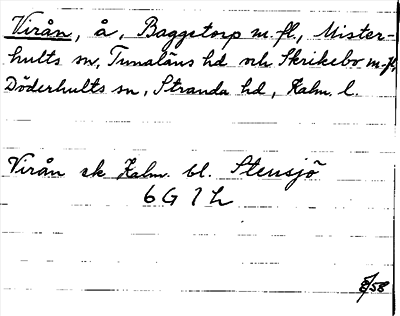 Virån, å, Baggetorp m.fl., Mister-
hults sn, Tunaläns hd och Skrikebo m.fl,
Döderhults sn, Stranda hd, Kalm. l.
Virån ek Kalm. bl. Stensjö
6G 7 h
8/58